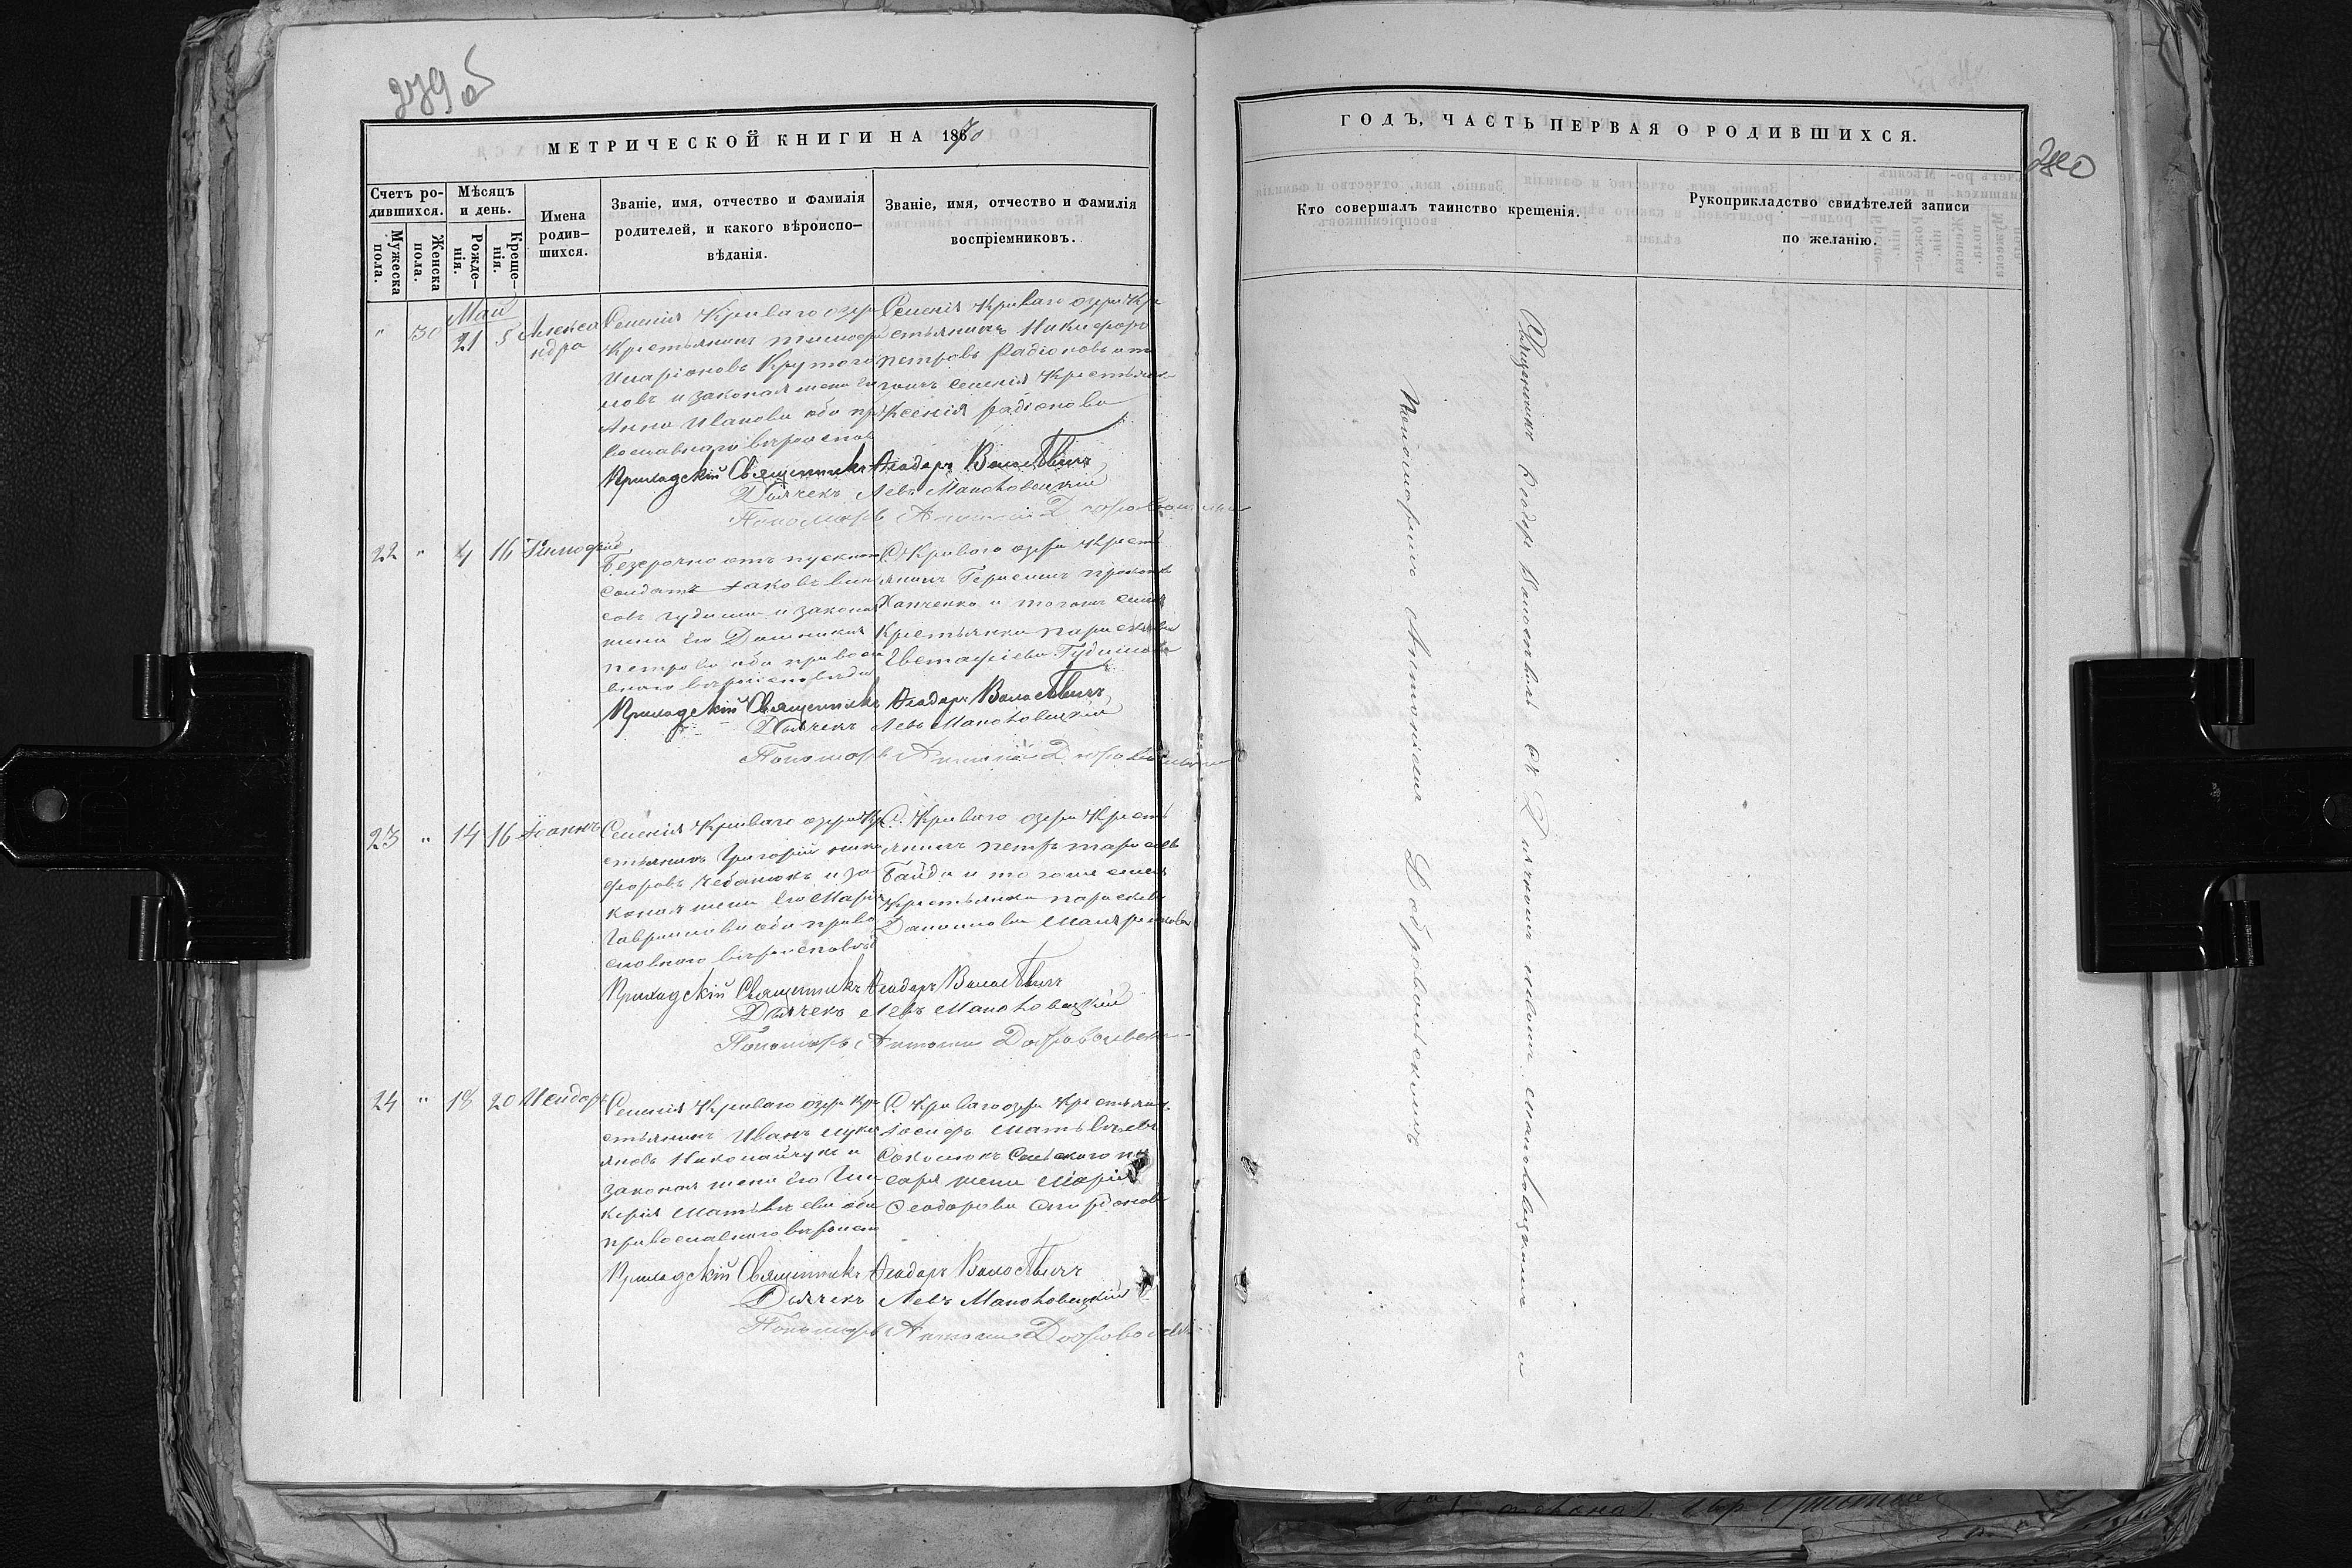 279 об
МЕТРИЧЕСКОЙ КНИГИ НА 1870
Счетъ ро-
дившихся.
Мужеска
пола.
Женска
пола.
Мѣсяцъ
и день.
Рожде-
нія.
Креще-
нія.
Имена
родив-
шихся.
Званіе, имя, отчество и фамилія
родителей, и какого вѣроиспо-
вѣданія.
Званіе, имя, отчество и фамилія
воспріемниковъ.
Май
" 30 21 Алекса
ндра
Селенія Криваго озера
Крестьянинъ
Иларіоновъ
и законая жена его
Анна Иванова оба пра
вославнаго вѣроиспов
Селенія Криваго озера Кре
стьянинъ Никифоръ
Петровъ Радіоновъ и то
гожъ селенія Крестьянка
Ксенія Радіонова
Приходскій Священникъ Ѳеодоръ
Дьячекъ Левъ Маноховецкій
Пономарь Антоній Добровольскій
22 " 4 16 Тимофей
Безсрочно отпускной
солдатъ Яковъ
и законая
жена его Домникія
Петрова оба правосла
внаго вѣроисповѣда
С. Криваго озера Кресть
янинъ Герасимъ
Ханченко и тогожъ селенія
Крестьянка Параскева
Евстафіева Гудимова
Приходскій Священникъ Ѳеодоръ
Дьячекъ Левъ Маноховецкій
Пономарь Антоній Добровольскій
23 " 14 16 Іоаннъ
Селенія Криваго озера Кре
стьянинъ Григорій Ники
форовъ Чебанюкъ и за
коная жена его Марія
Гаврилова оба право
славнаго вѣроисповѣд
С. Криваго озера Кресть
янинъ Петръ Тарасевъ
Байда и тогоже селен
Крестьянка Параскева
Данилова
Приходскій Священникъ Ѳеодоръ
Дьячекъ Левъ Маноховецкій
Пономарь Антоній Добровольскій
24 " 18 20 Исидоръ
Селенія Криваго озера Кре
стьянинъ Иванъ Лукі
яновъ Николайчукъ и
законая жена его Гли
керія Матвѣева оба
православнаго вѣроисп
С. Криваго озера Крестьянинъ
Іосифъ Матвѣевъ
Соколюкъ Сельского пи
саря жена Марія
Ѳеодорова Спиридонова
Приходскій Священникъ Ѳеодоръ
Дьячекъ Левъ Маноховецкій
Пономарь Антоній Добровольскій
280
ГОДЪ, ЧАСТЬ ПЕРВАЯ О РОДИВШИХСЯ.
Кто совершалъ таинство крещенія.
Рукоприкладство свидѣтелей записи
по желанію.
Священникъ Ѳеодоръ съ Дьячкомъ Львомъ Маноховецкимъ и
Пономаремъ Антоніемъ Добровольскимъ